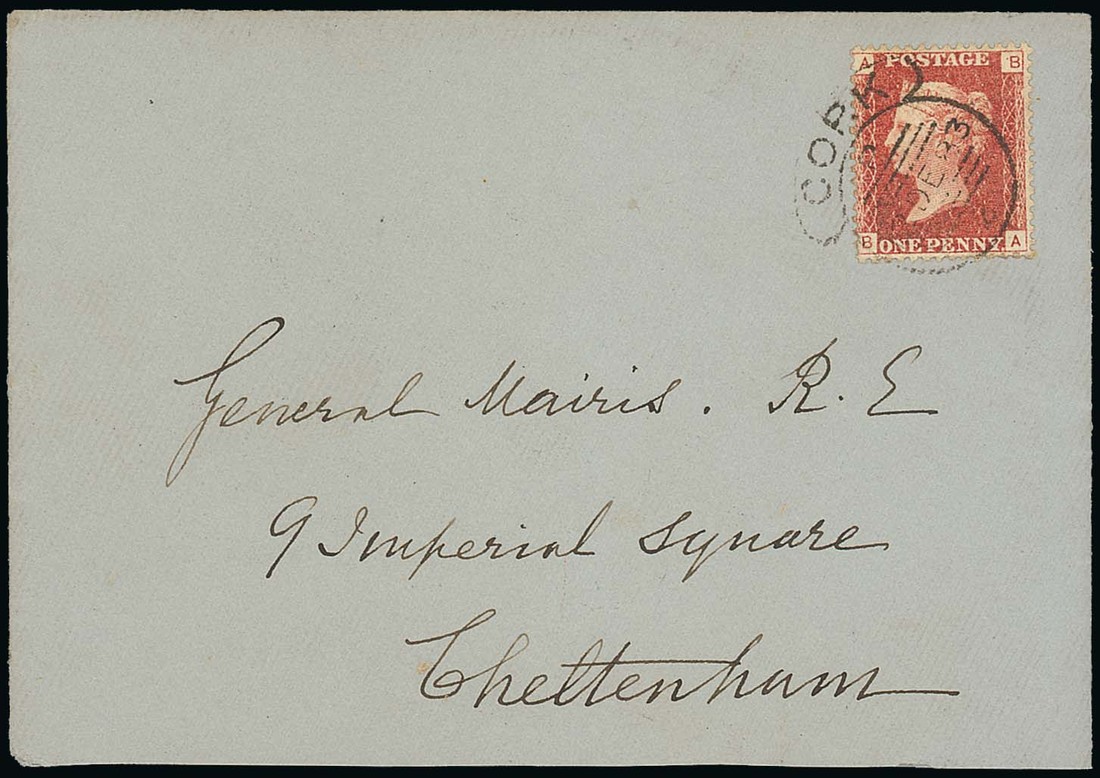 A POSTAGE B
CORK
B ONE PENNY. A
General Mairis. R. E
9 Imperial Square
Cheltenham